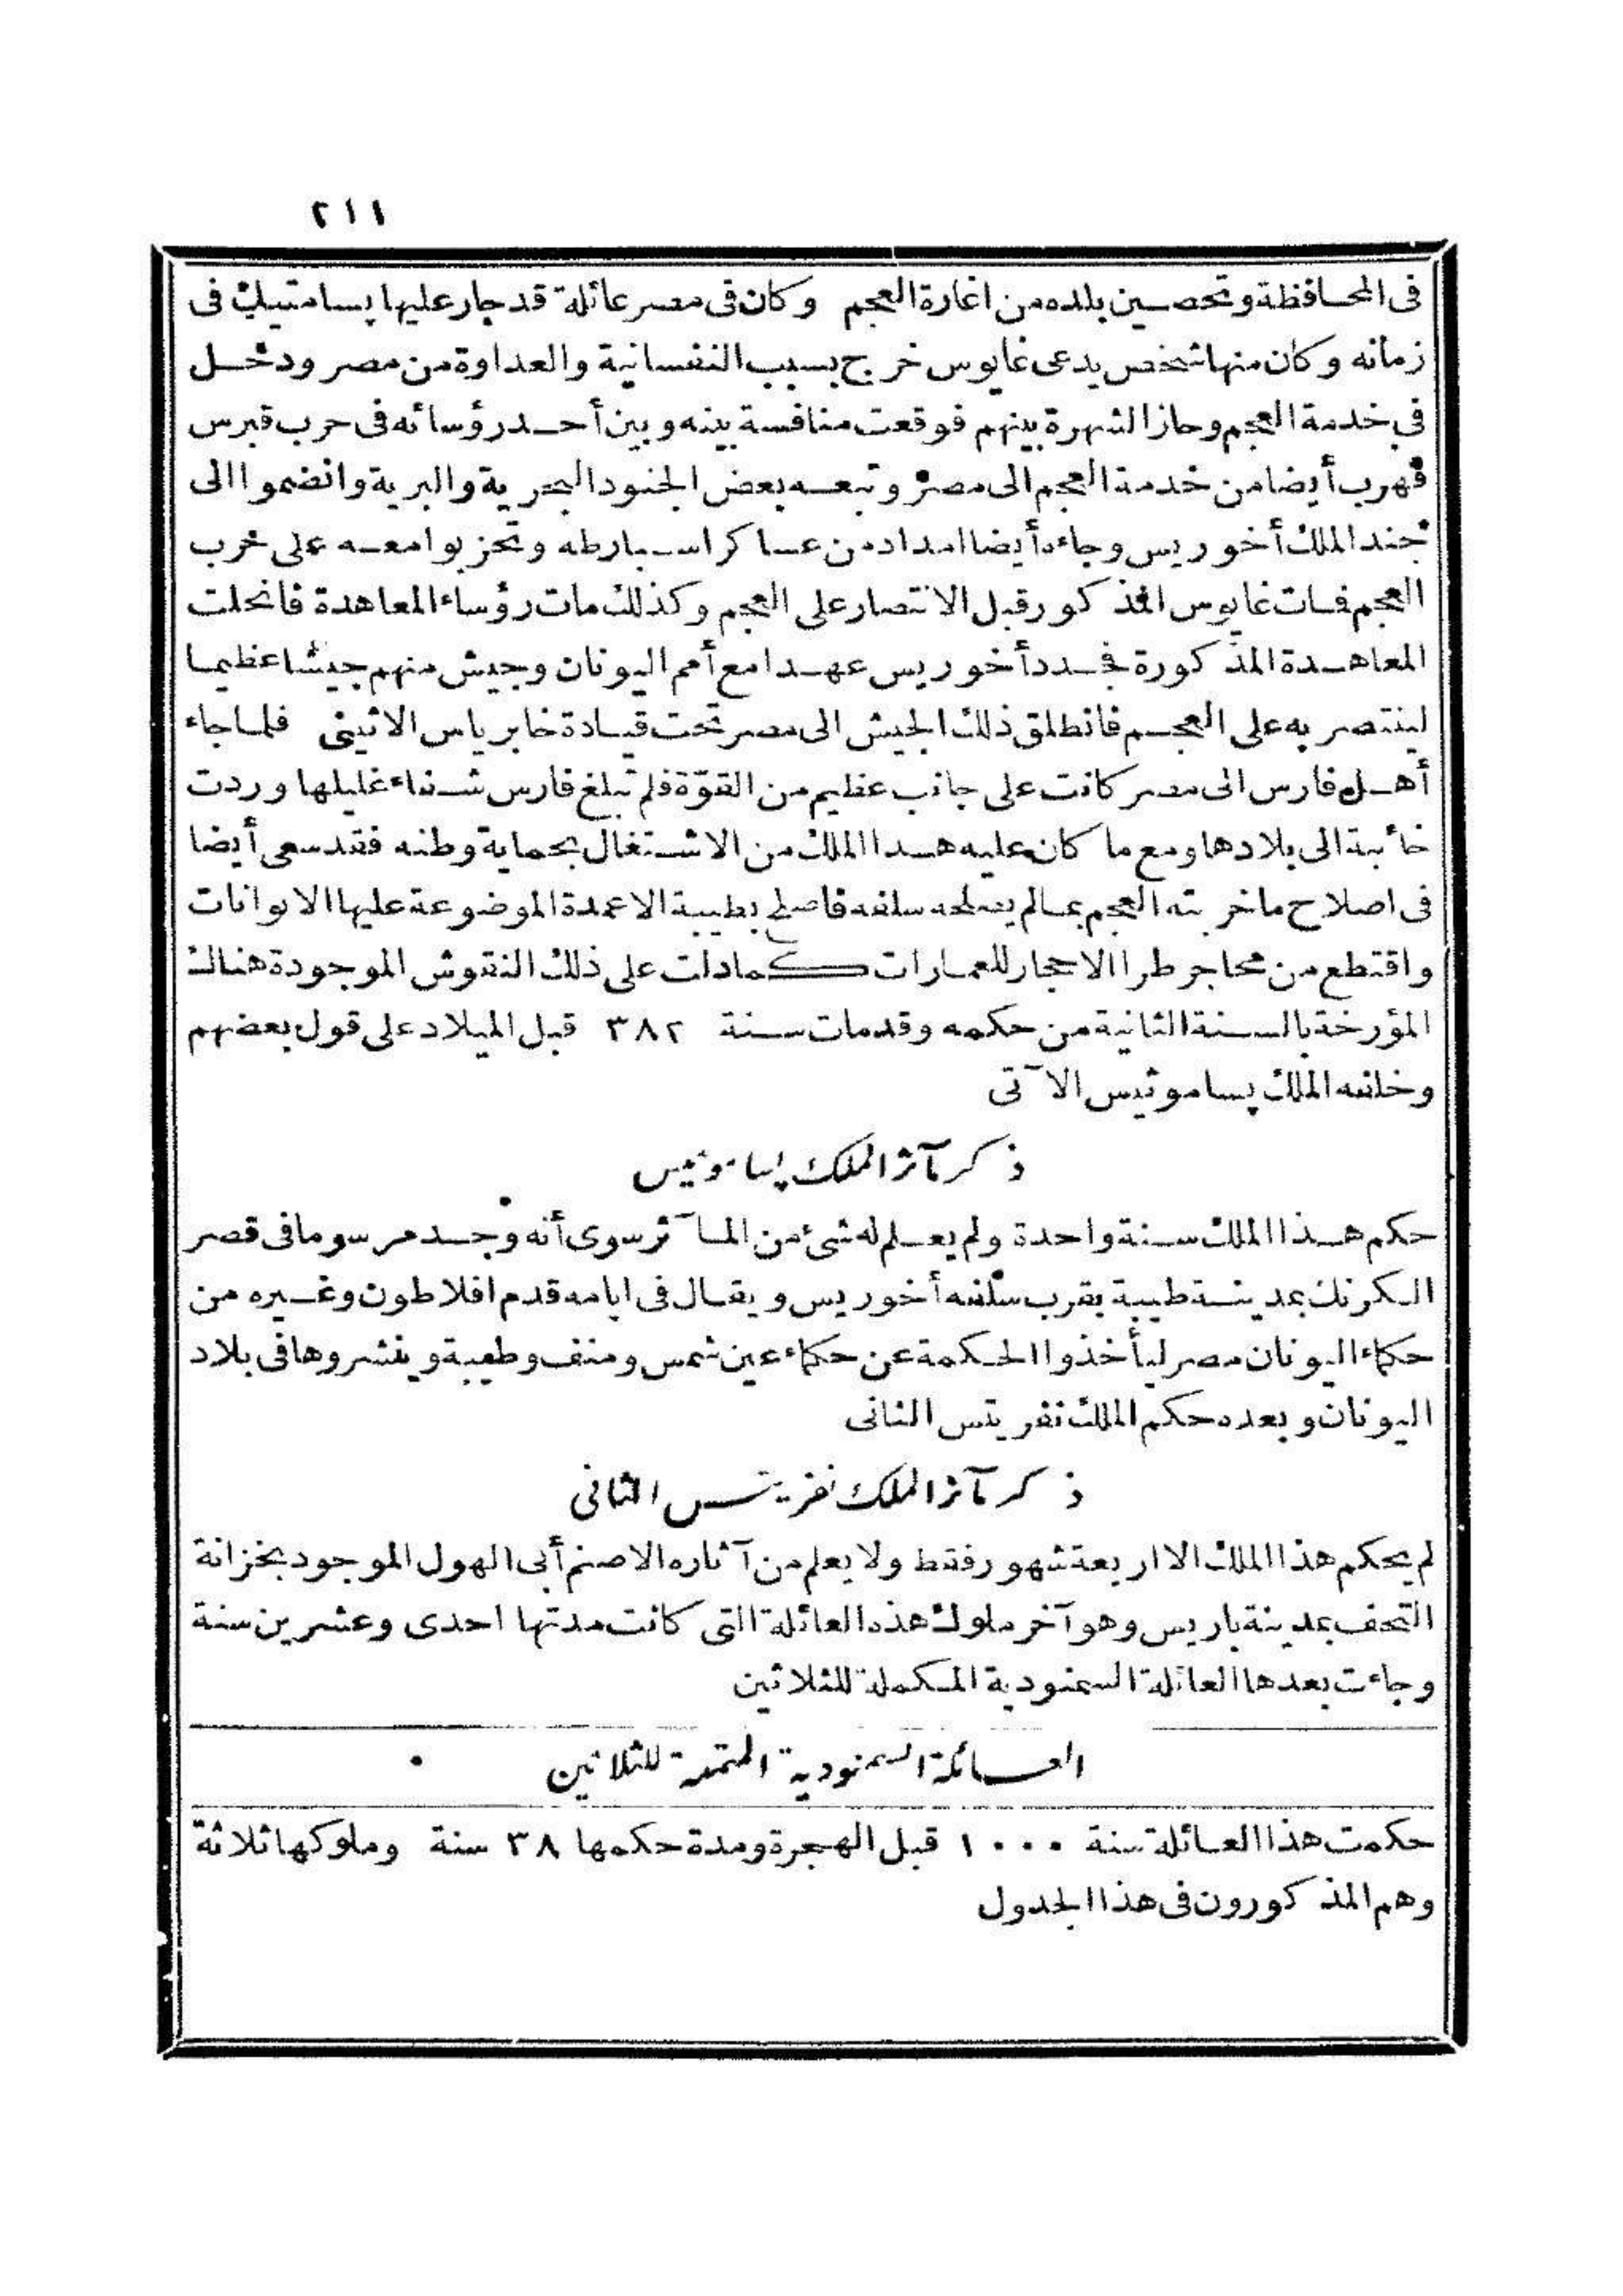 ٢١١
فى المحافظة وتحصين بلده من اغارة العجم وكان فى مصر عائلة قد جار عليها پسامتيك فى
زمانه وكان منها شخص يدعى غايوس خرج بسبب النفسانية والعداوة من مصر ودخل
فى خدمة العجم وحاز الشهرة بينهم فوقعت منافسة بينه وبين أحد رؤسائه فى حرب قبرس
فهرب أيضا من خدمة العجم الى مصر وتبعه بعض الجنود البحرية والبرية وانضموا الى
جند الملك أخوريس وجاءه أيضا امداد من عساكر اسبارطه وتحزبوا معه على حرب
العجم فمات غايوس المذكور قبل الانتصار على العجم وكذلك مات رؤساء المعاهدة فانحلت
المعاهدة المذكورة فجدد أخوريس عهدا مع أمم اليونان وجيش منهم جيشا عظيما
لينتصر به على العجم فانطلق ذلك الجيش الى مصر تحت قيادة خابرياس الاثينى فلما جاء
أهل فارس الى مصر كانت على جانب عظيم من القوّة فلم تبلغ فارس شفاء غليلها وردت
خائبة الى بلادها ومع ما كان عليه هدا الملك من الاشتغال بحماية وطنه فقد سعى أيضا
فى اصلاح ما خربته العجم بمالم يصلحه سلفه فاصلح بطيبة الاعمدة الموضوعة عليها الايوانات
واقتطع من محاجر طرا الاحجار للعمارات كمادلت على ذلك النقوش الموجودة هنالك
المؤرخة بالسنة الثانية من حكمه وقد مات سنة ٣٨٢ قبل الميلاد على قول بعضهم
وخلفه الملك پساموثيس الآتى
ذكر مآثر الملك پساموثيس
حكم هذا الملك سنة واحدة ولم يعلم له شىء من المآثر سوى أنه وجد مرسوما فى قصر
الكرنك بمدينة طيبة بقرب سلفه أخوريس ويقال فى ايامه قدم افلاطون وغيره من
حكماء اليونان مصر ليأخذوا الحكمة عن حكماء عين شمس ومنف وطيبة وينشروها فى بلاد
اليونان وبعده حكم الملك نفريتس الثانى
ذكر مآثر الملك نفريتس الثانى
لم يحكم هذا الملك الا اربعة شهور فقط ولا يعلم من آثاره الا صنم أبى الهول الموجود بخزانة
التحف بمدينة باريس وهو آخر ملوك هذه العائلة التى كانت مدتها احدى وعشرين سنة
وجاءت بعدها العائلة السمنودية المكملة للثلاثين
العائلة السمنودية المتممة للثلاثين
حكمت هذا العائلة سنة ١٠٠٠ قبل الهجرة ومدة حكمها ٣٨ سنة وملوكها ثلاثة
وهم المذكورون فى هذا الجدول